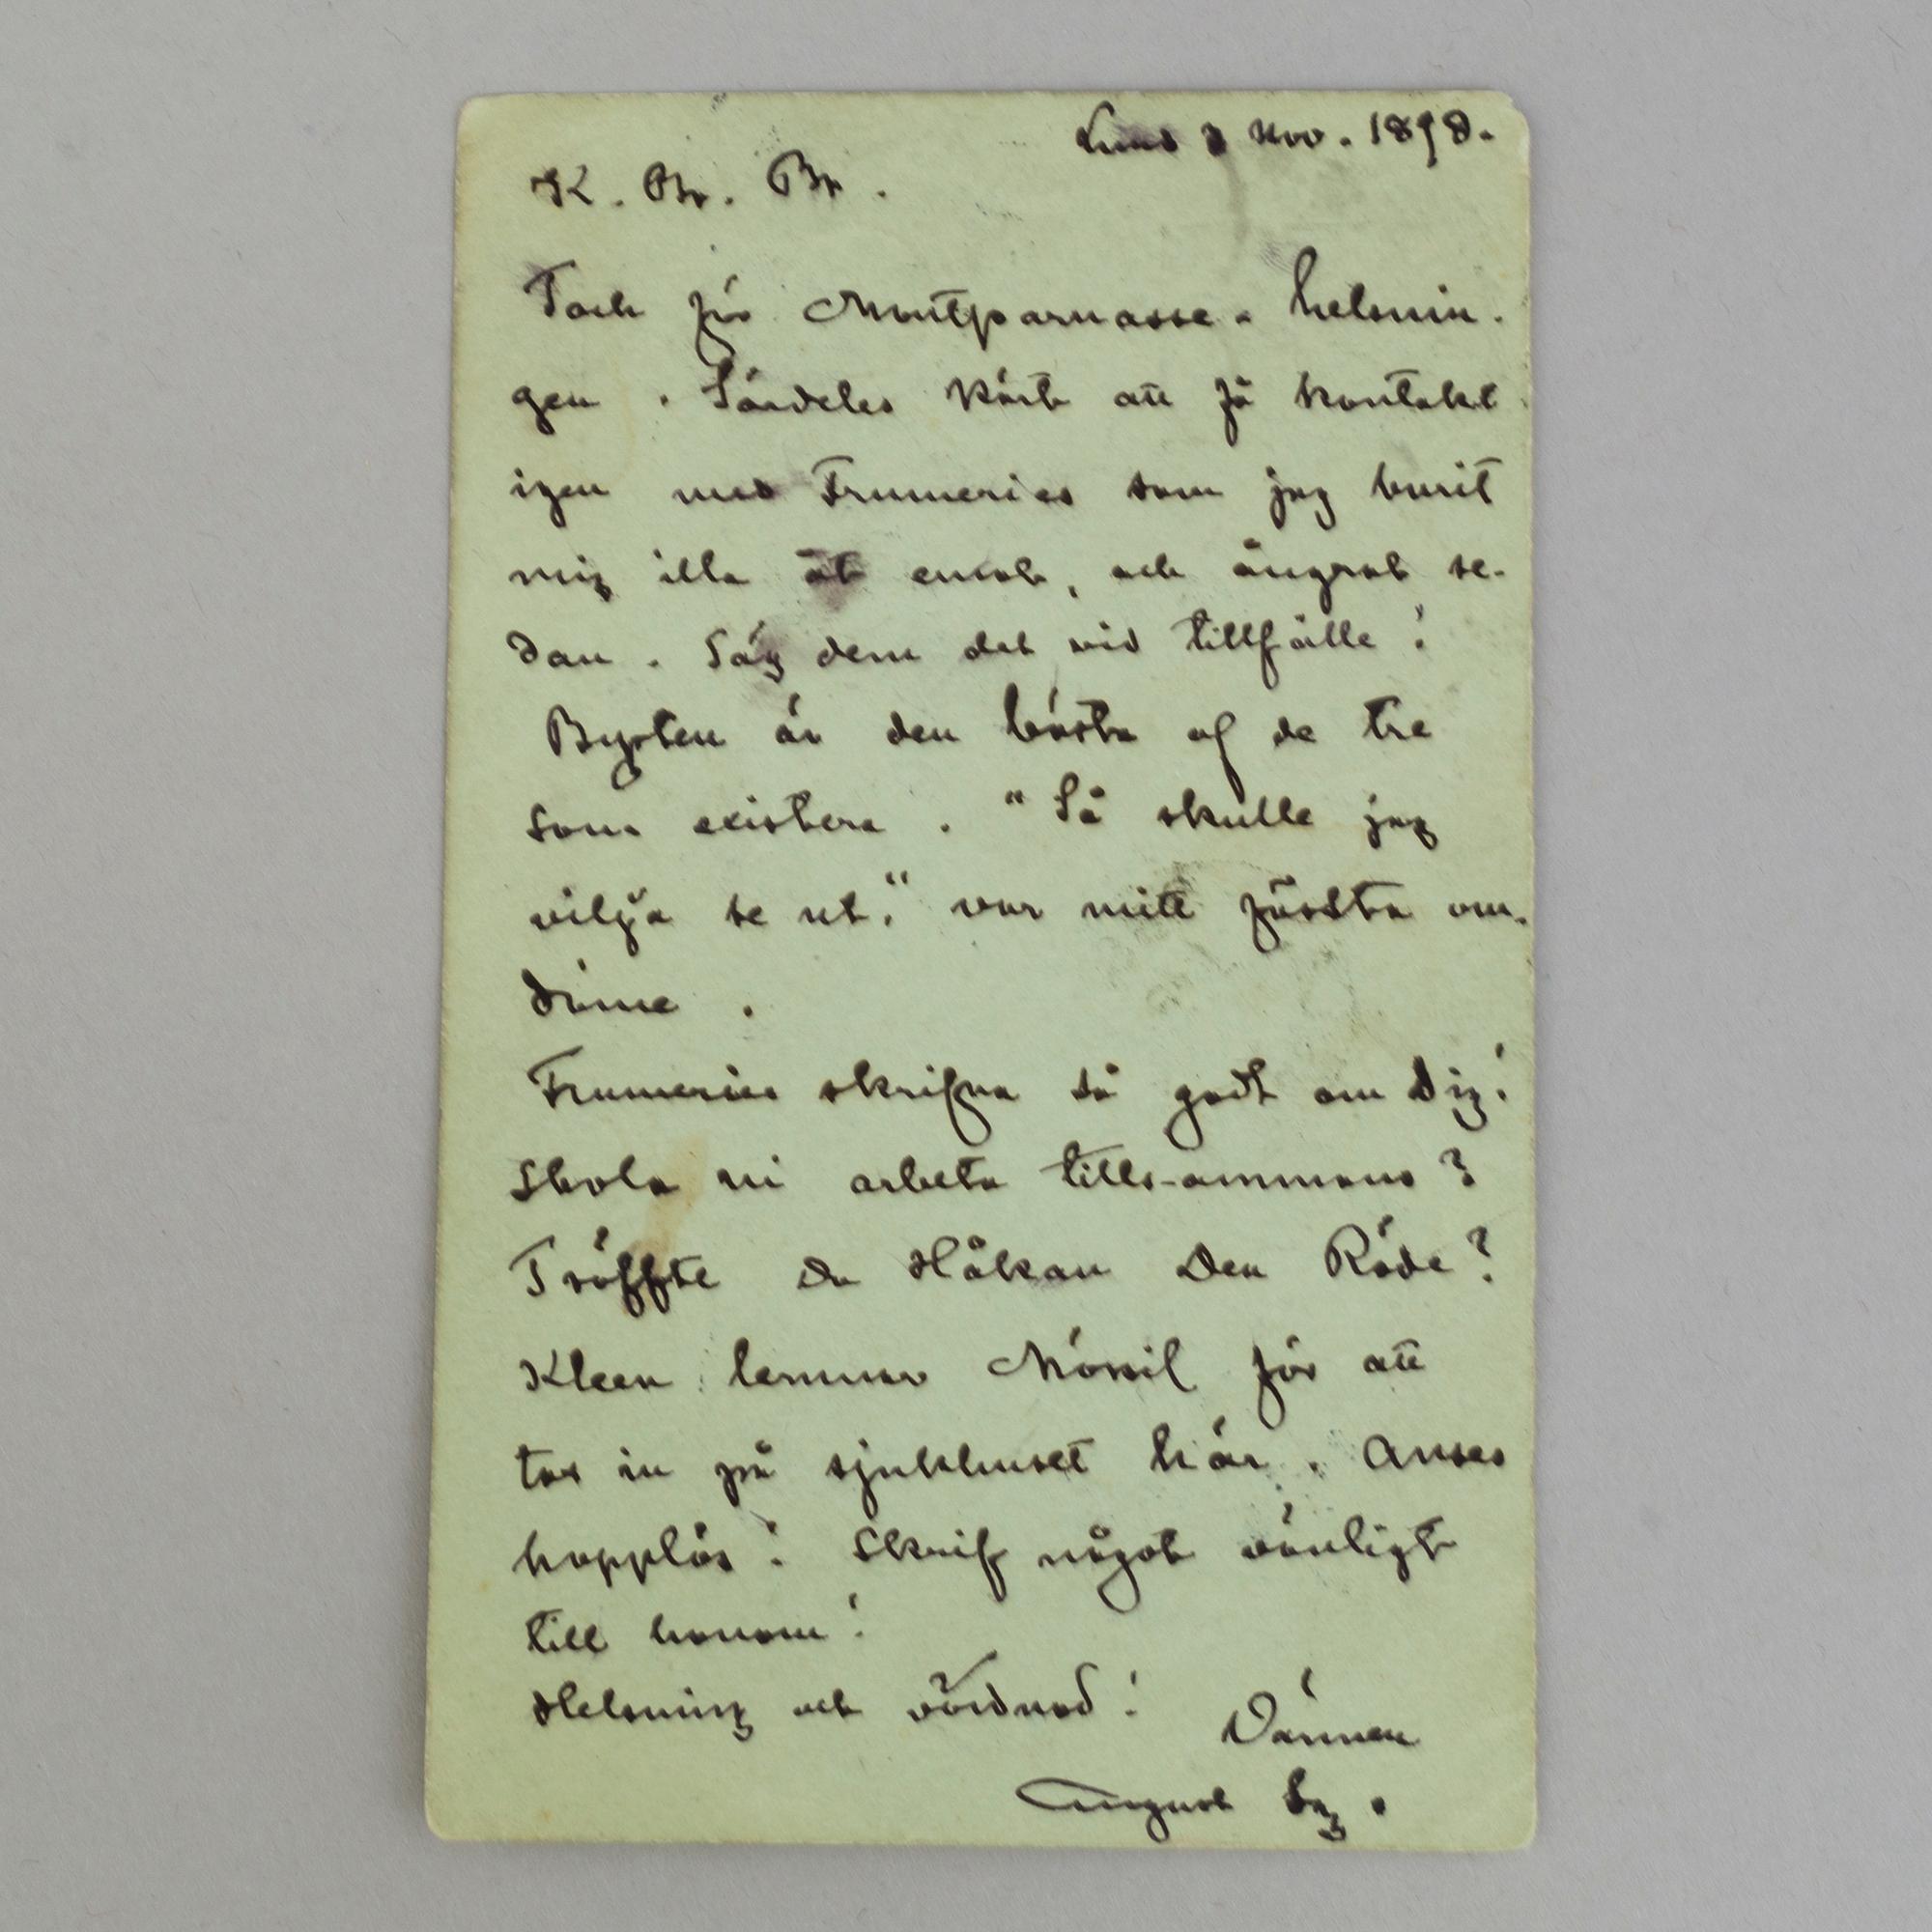 Lund 3 Nov. 1898.
K. Br. Br.
Tack för Montparnasse-helsnin-
gen. Särdeles kärt att få kontakt
igen med Frumeries som jag burit
mig illa åt emot, och ångrat se-
dan. Säg dem det vid tillfälle!
Bysten är den bästa af de tre
som existera. "Så skulle jag
vilja se ut." var mitt första om-
döme.
Frumeries skrifva så godt om Dig!
Skola ni arbeta tills-ammans?
Träffte Du Håkan Den Röde?
Kleen lemnar Mörsil för att
tas in på sjukhuset här. Anses
hopplös! Skrif något vänligt
till honom!
Helsning och vördnad! Vännen
August Sg.